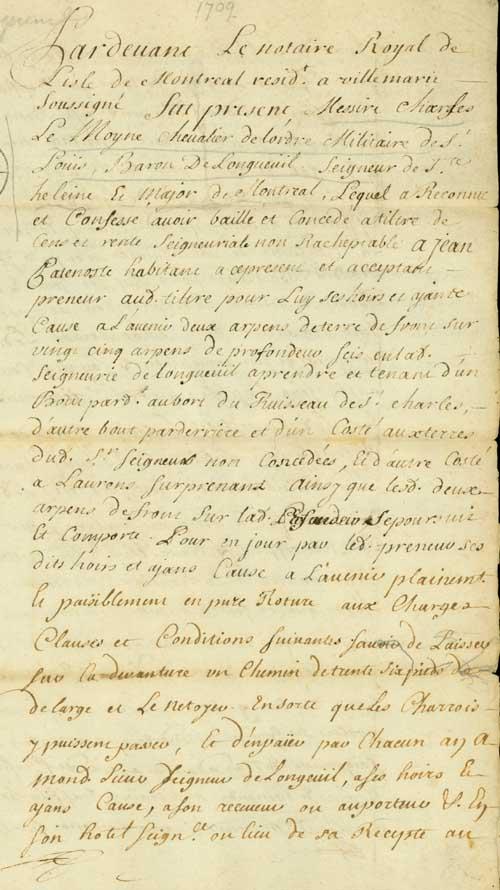 1709
Pardevant Le notaire Royal de
Lisle de Montreal resid.t a villemarie
Soussigné fut present Messire Charles
Le Moyne Chevalier de lordre Militaire de St.
Loüis, Baron De Longueuil, Seigneur de Ste.
heleine Et Major de Montreal, Lequel a Reconnu
et Confessé avoir baillé et Concedé a tiltre de
Cens et rente Seigneuriale non Racheptable a jean
Patenoste habitant a ce present et acceptant –
preneur aud. tiltre pour Luy ses hoirs et ajants
Cause a L'avenir deux arpens de terre de front sur
vingt cinq arpens de profondeur scis en lad.
Seigneurie de longueüil a prendre et tenant d'un
Bout pard.t au bort du Ruisseau de St. charles, –
d'autre bout par derriere et d'un Costé aux terres
dud. Sr. Seigneur non Concedées, Et d'autre Costé
a Laurons surprenant Ainsy que lesd. deux
arpens de front sur lad. Profondeur se poursuit
Et Comporte. Pour en jouir par led. preneur ses
dits hoirs et ajans Cause a L'avenir plainemt.
Et paisiblement en pure Roture aux Charges
Clauses et Conditions suivantes savoir de Laisser
sur la devanture un Chemin de trente six pieds de
de large et Le Netoyer En sorte que Les Charrois –
y puissent passer, Et d'en païer par Chacun an A
mond. Sieur Seigneur de Longeüil, a ses hoirs Et
ajans Cause, a son receveur ou au porteur &. En
son hotel Seign.al ou lieu de sa Recepte au